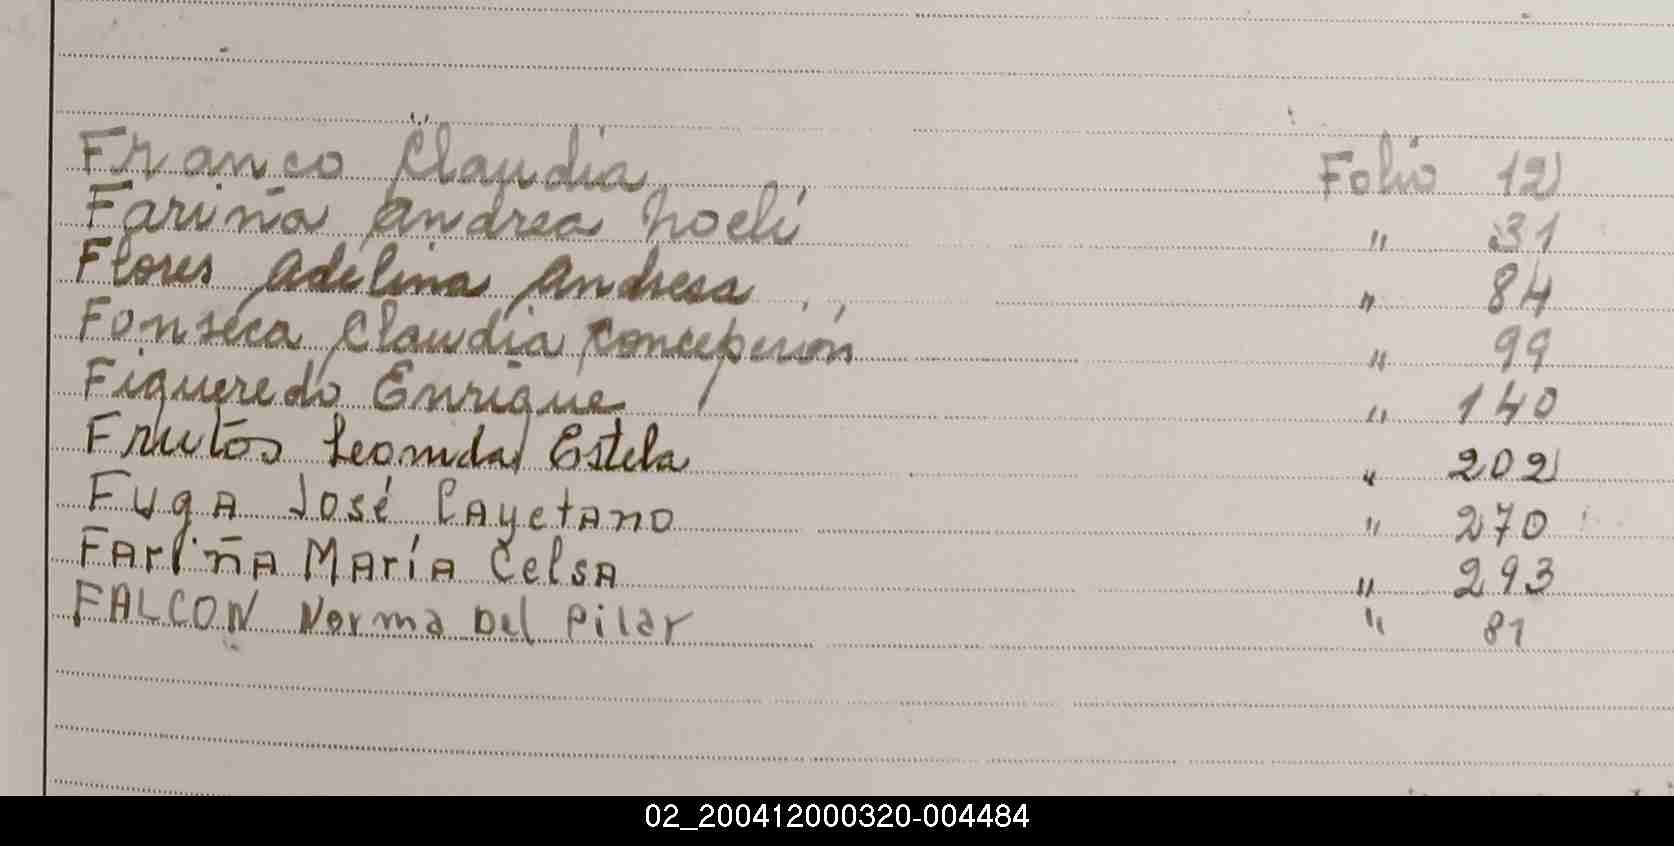 Franco Claudia Folio 12
Fariña Andrea Noelí " 31
Flores Adelina Andresa " 84
Fonseca Claudia Concepción " 99
Figueredo Enrique " 140
Frutos Leonida Estela " 202
Fuga José Cayetano " 270
Fariña María Celsa " 293
FALCON Norma Del Pilar " 81
02_200412000320-004484